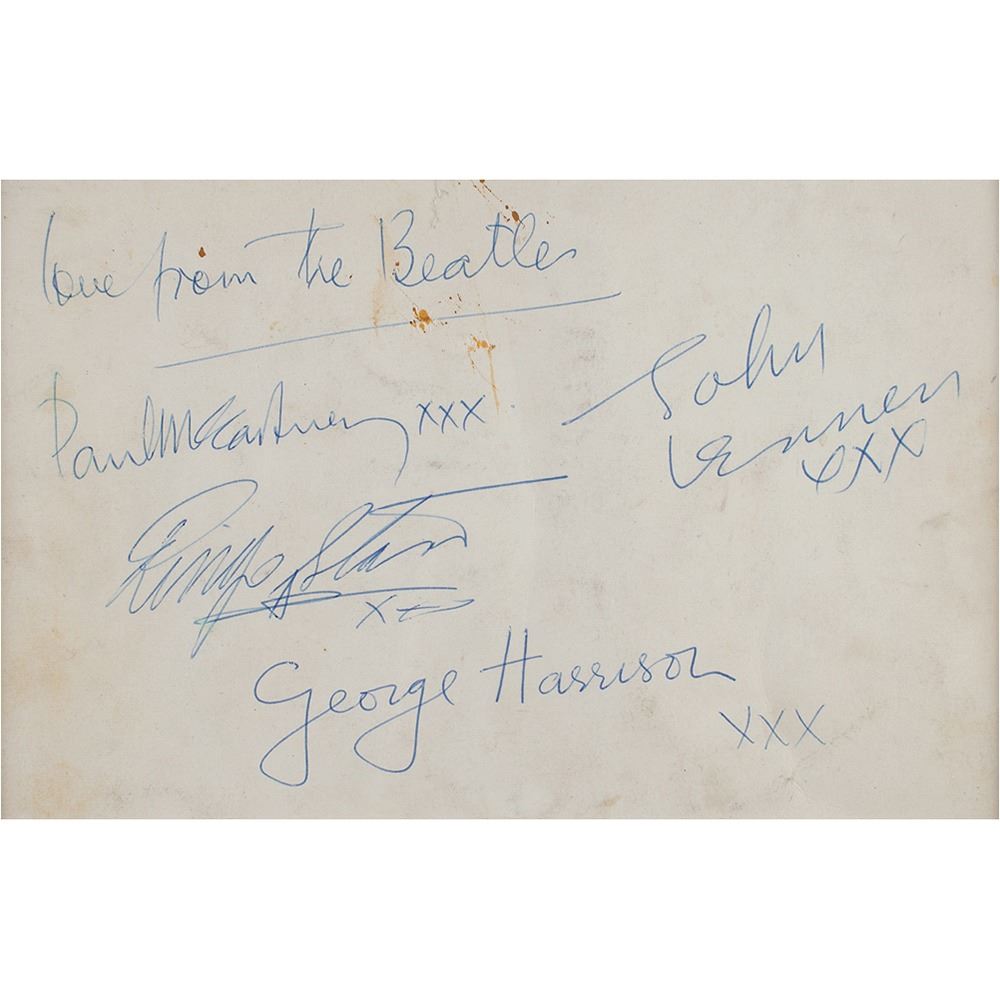 love from the Beatles
Paul McCartney xxx
John
Lennon
xxx
Ringo Starr
xx
George Harrison
xxx